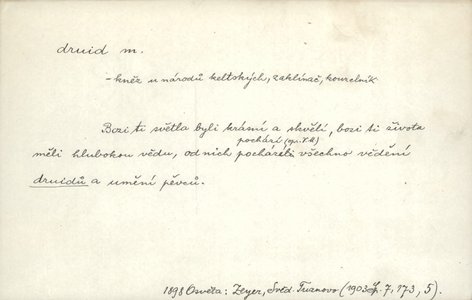 druid m.
- kněz u národů keltských, zaklínač, kouzelník
Bozi ti světla byli krásní a skvělí, bozi ti života
pochází
měli hlubokou vědu, od nich pocházeli všechno vědění
druidů a umění pěvců.
1898 Osvěta: Zeyer, Turnovo (1903 7, 173, 5).